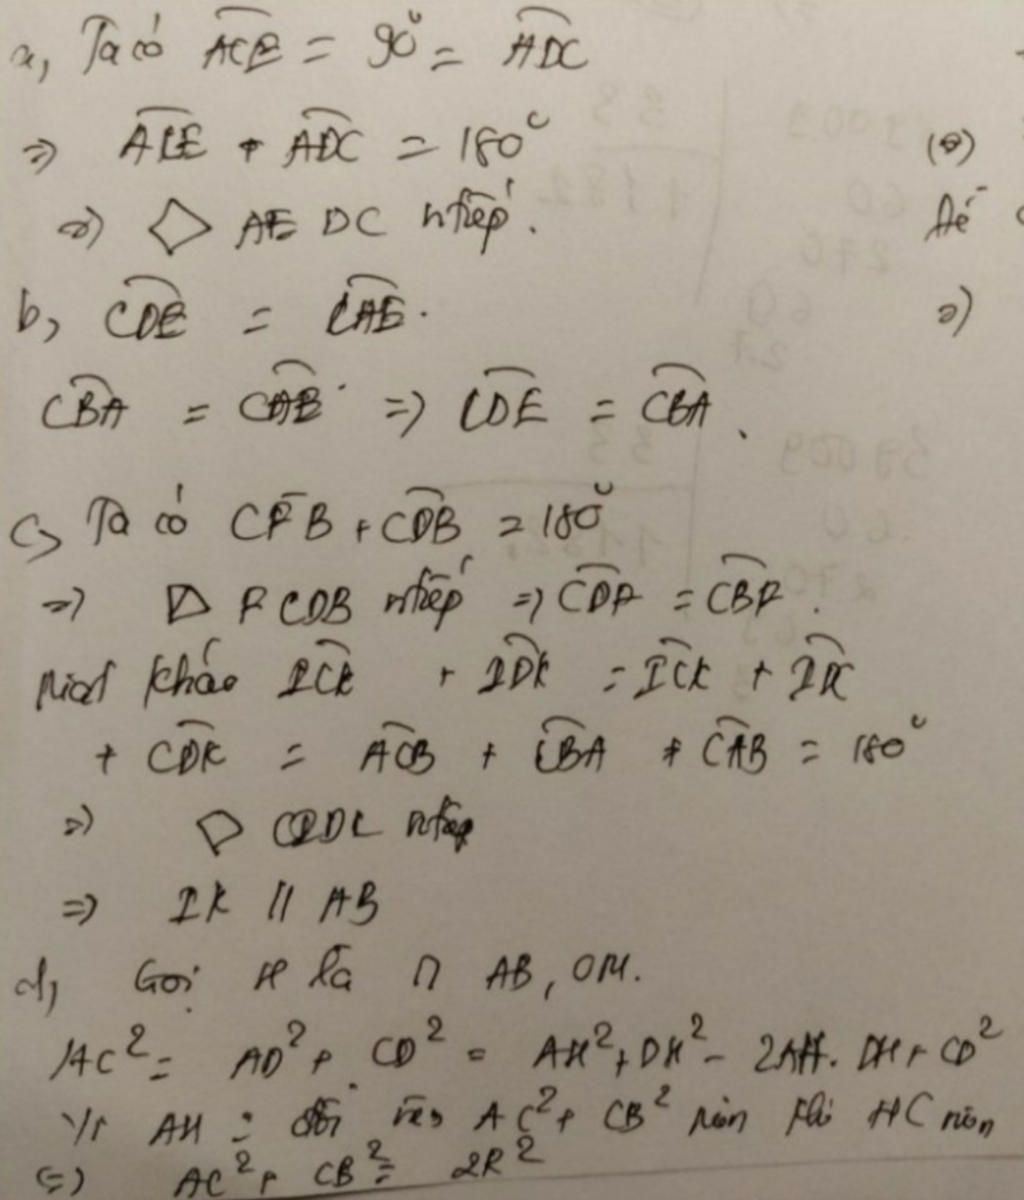 a, Ta có ACE = 90° = ADC
⇒ ACE + ADC = 180°
⇒ ◇ AEDC ntiếp.
b, CDE = CAE.
CBA = CAE ⇒ CDE = CBA.
c, Ta có CFB + CDB = 180°
⇒ FCDB ntiếp ⇒ CDF = CBF.
Mặt khác ICK + IDK = ICK + IDC
+ CDK = ACB + CBA + CAB = 180°
⇒ CIDK ntiếp
⇒ IK // AB
d, Gọi H là ∩ AB, OM.
AC² = AD² + CD² = AH² + DH² - 2AH.DH + CD²
AH AC² + CB² min khi HC min
⇒ AC² + CB² = 2R²
(*)